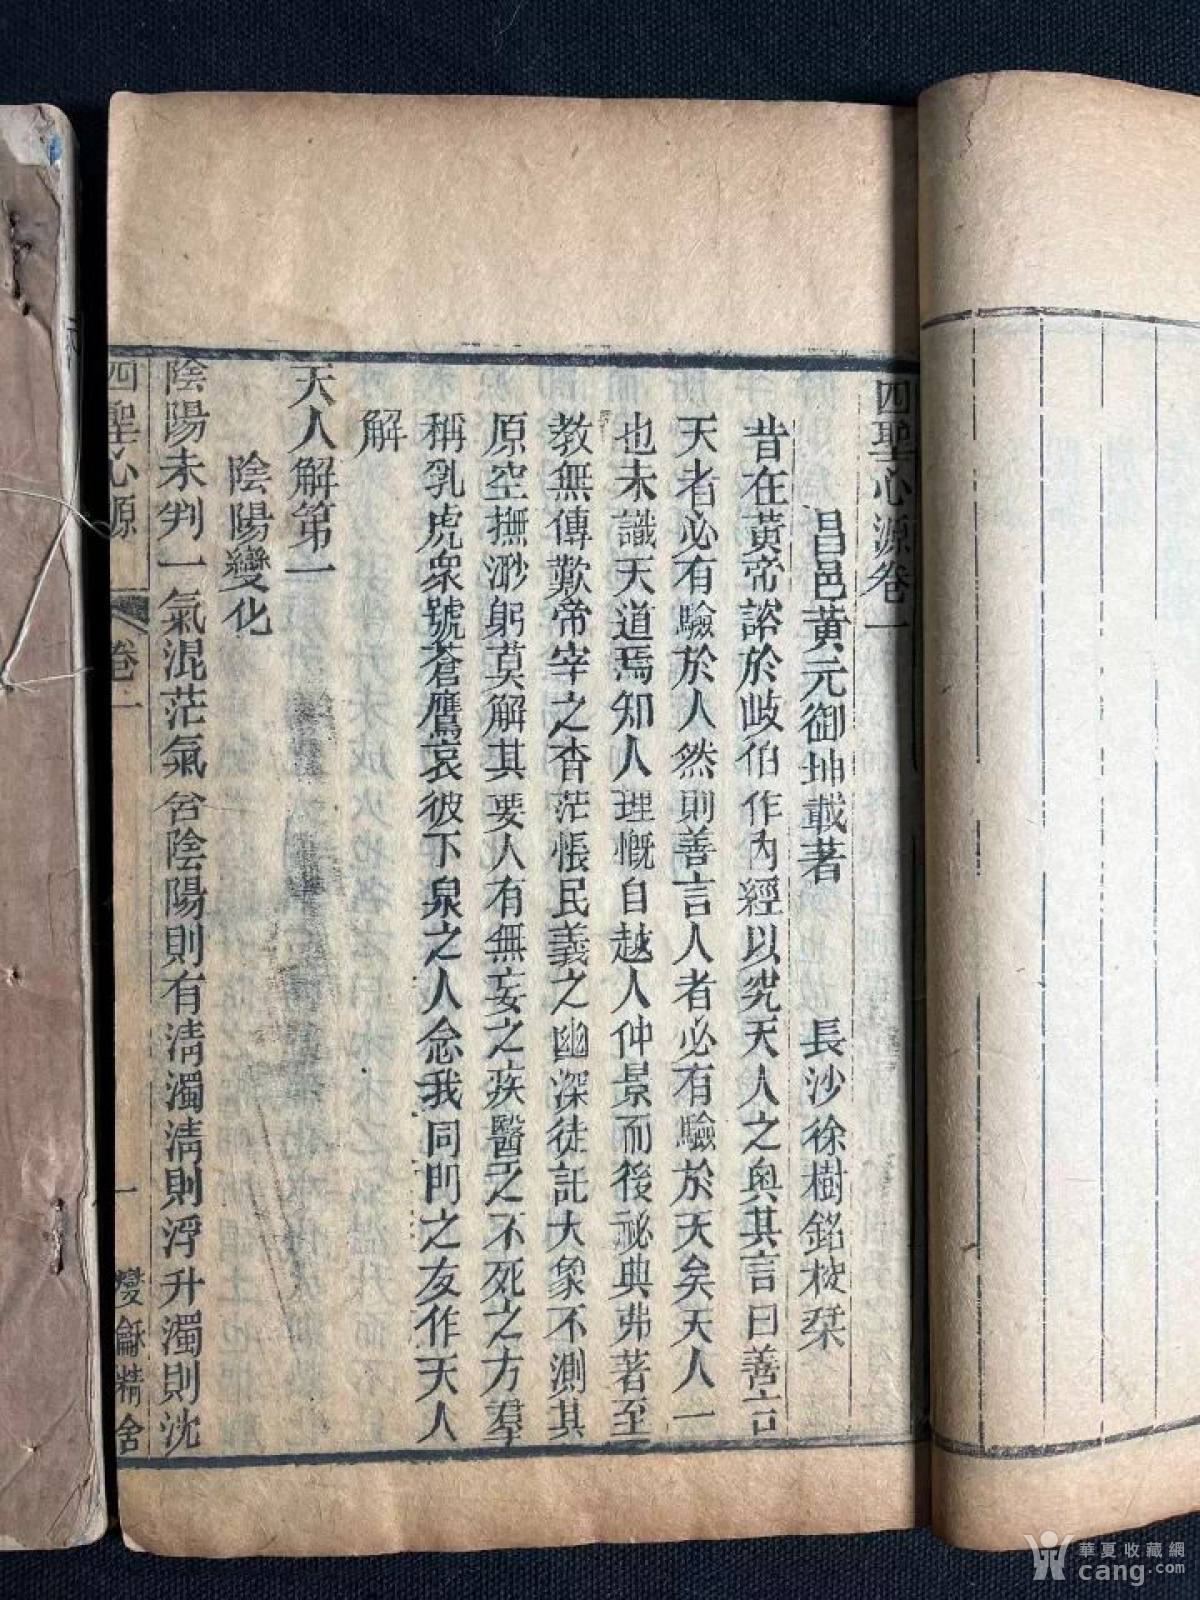 四聖心源卷一
昌邑黃元御坤載著 長沙徐樹銘校栞
昔在黃帝諮於岐伯作內經以究天人之奧其言曰善言
天者必有驗於人然則善言人者必有驗於天矣天人一
也未識天道焉知人理慨自越人仲景而後祕典弗著至
教無傳歎帝宰之杳茫悵民義之幽深徒託大象不測其
原空撫渺躬莫解其要人有無妄之疾醫乏不死之方羣
稱乳虎衆號蒼鷹哀彼下泉之人念我同門之友作天人
解
天人解第一
陰陽變化
陰陽未判一氣混茫氣含陰陽則有清濁清則浮升濁則沈
四聖心源 卷一 一 燮龢精舍
華夏收藏網
cang.com